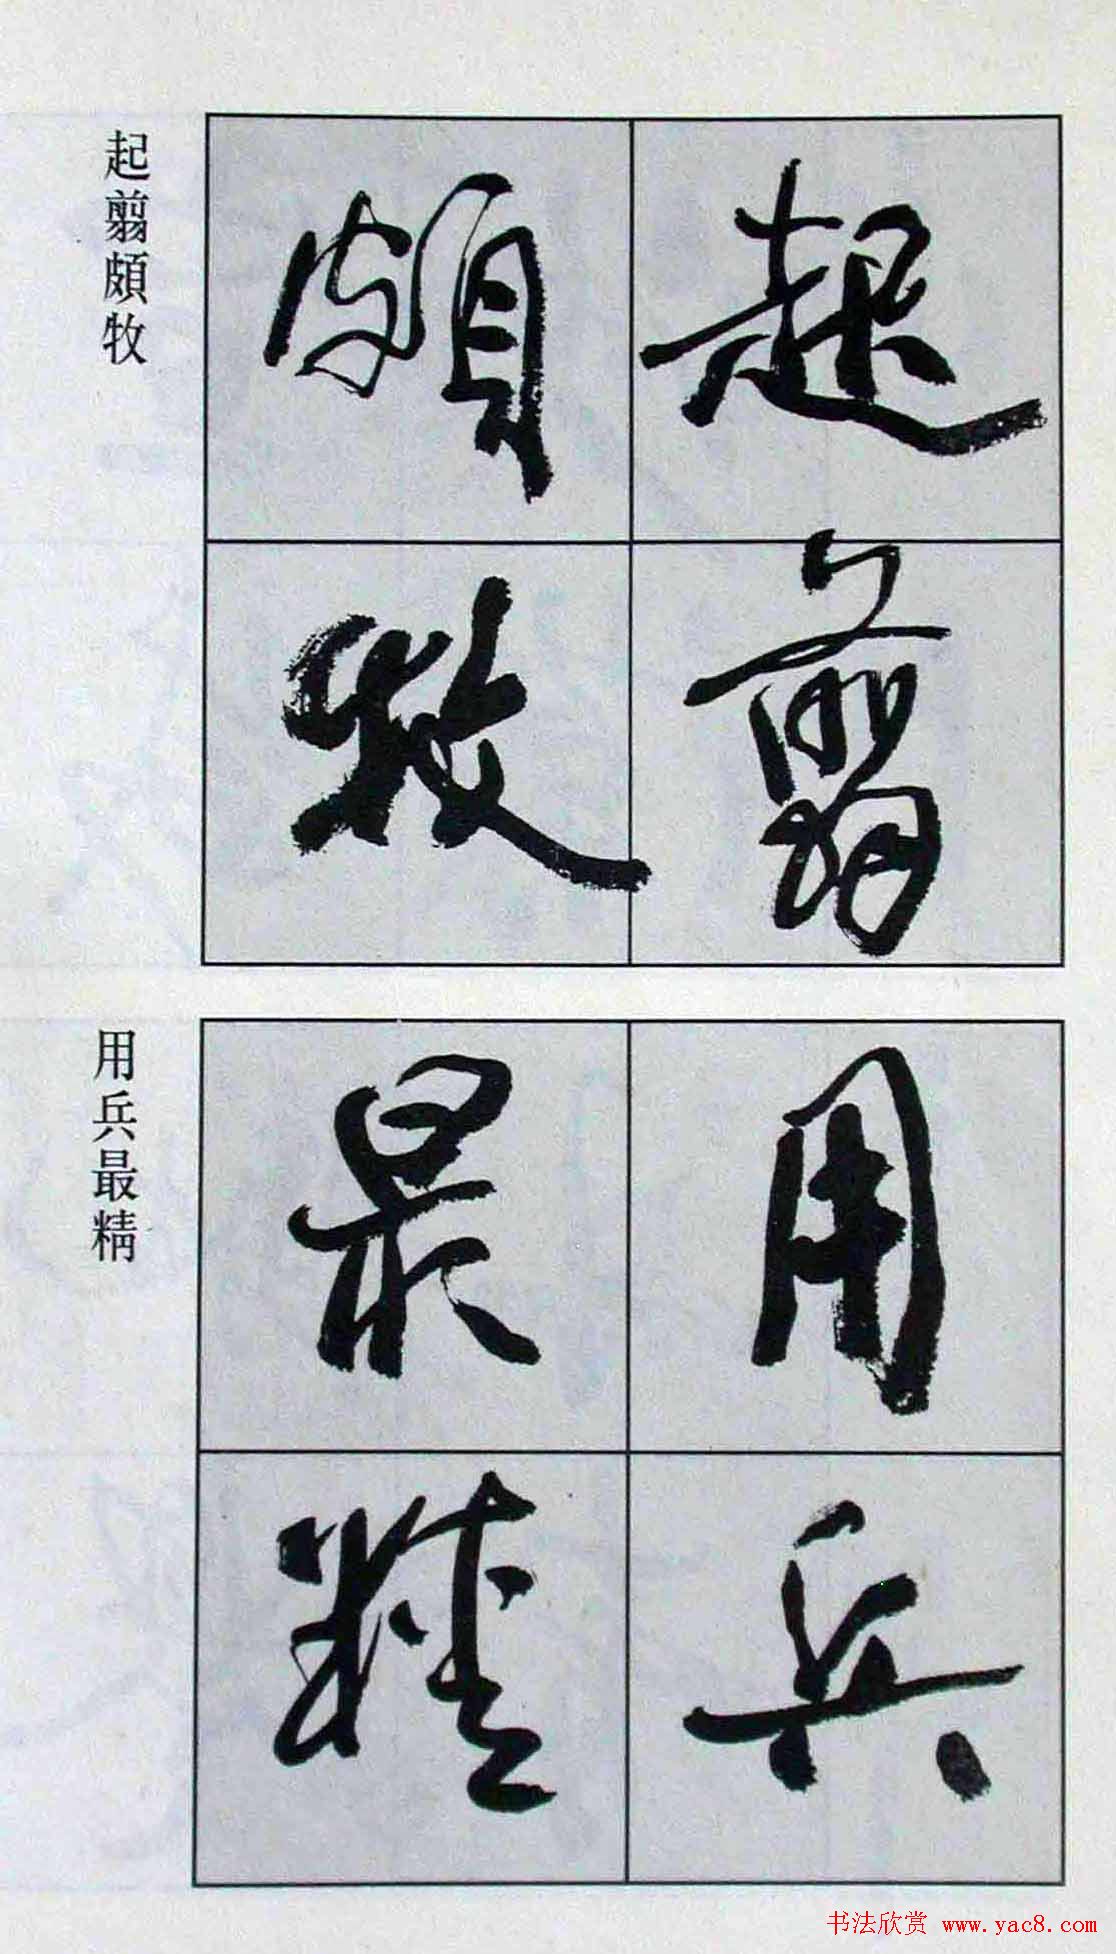 起翦頗牧
起翦
頗牧
用兵最精
用兵
最精
书法欣赏 www.yac8.com